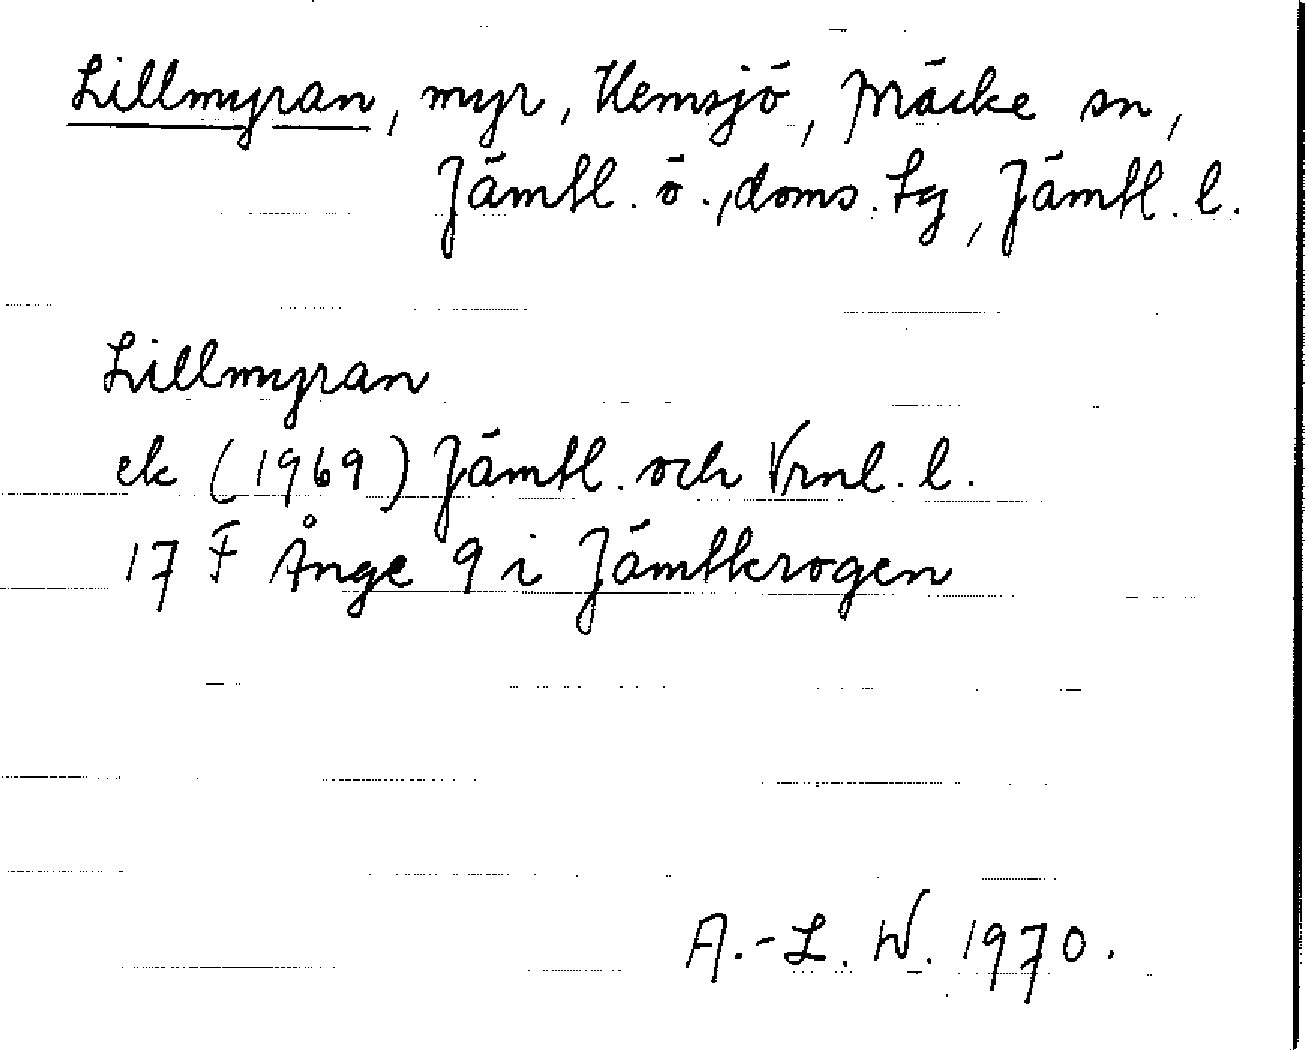 Lillmyran, myr, Hemsjö, Bräcke sn,
Jämtl. ö., doms. tg, Jämtl. l.
Lillmyran
ek (1969) Jämtl. och Vrnl. l.
17 F Ånge 9 i Jämtkrogen
A.-L. W. 1970.